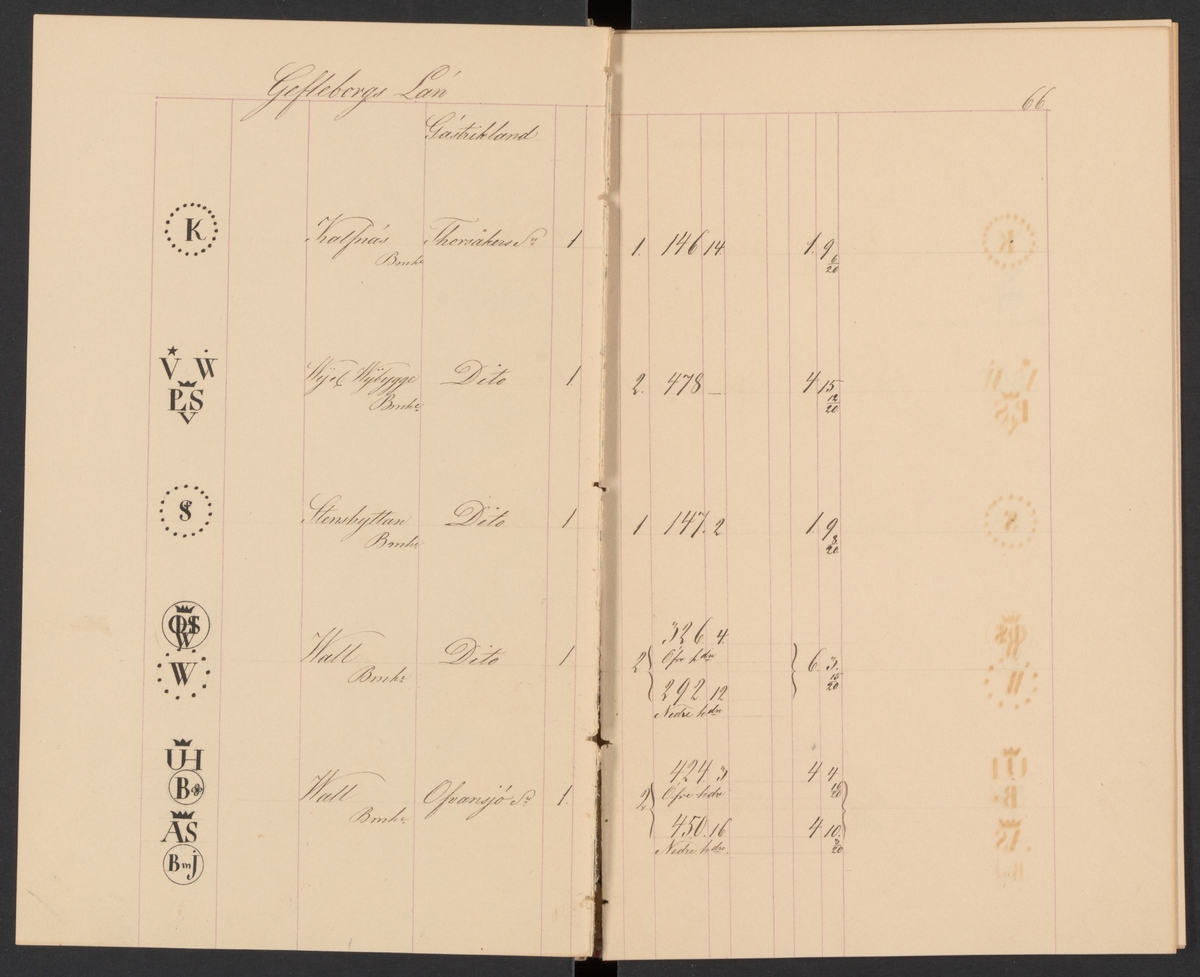 Gefleborgs Län
66
Gästrikland
K
Kalfnäs Thorsåkers Sn 1 1. 146 14 1. 9 6/20
Bruk
V W
PLS
V
Wij el Wijbygge Dito 1 2. 478 — 4 15 12/20
Bruk
S
Stenshyttan Dito 1 1 147. 2 1. 9 8/20
Bruk
W
326 4
Wall Dito 1 2 Öfre hdn 6. 3. 15/20
Bruk
292 12
Nedre hdn
W
UH
424 3 4 4 16/20
B
Wall Ofvansjö Sn 1. 2 Öfre hdn
Bruk
AS
450. 16 4 10. 3/20
Nedre hdn
BmJ